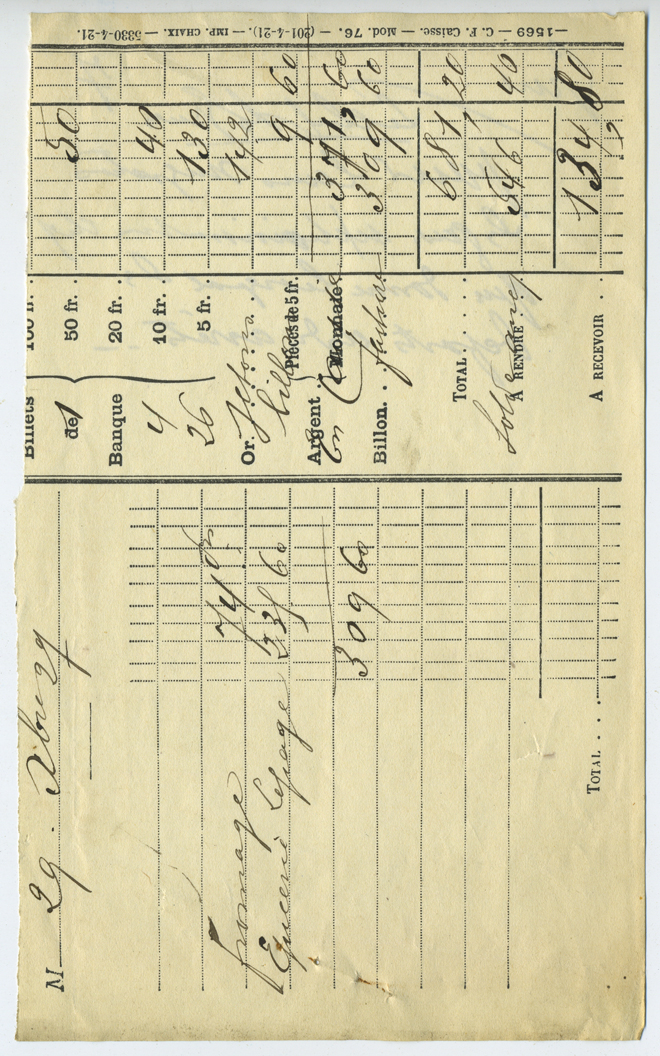 M 29.
Fromage 74
Epicerie Lesage 235 60
309 60
TOTAL . . .
Billets de Banque
100 fr.
1 50 fr. 50
20 fr.
4 10 fr. 40
26 5 fr. 130
Or. 142
Argent Pièces de 5 fr. 9 60
Monnaie 371 60
Billon. . facture 309 60
TOTAL . . . . . 681, 20
A RENDRE 546 40
A RECEVOIR . . 134 80
—1569 — C. F. Caisse. — Mod. 76. — (201-4-21). — IMP. CHAIX. — 5330-4-21.